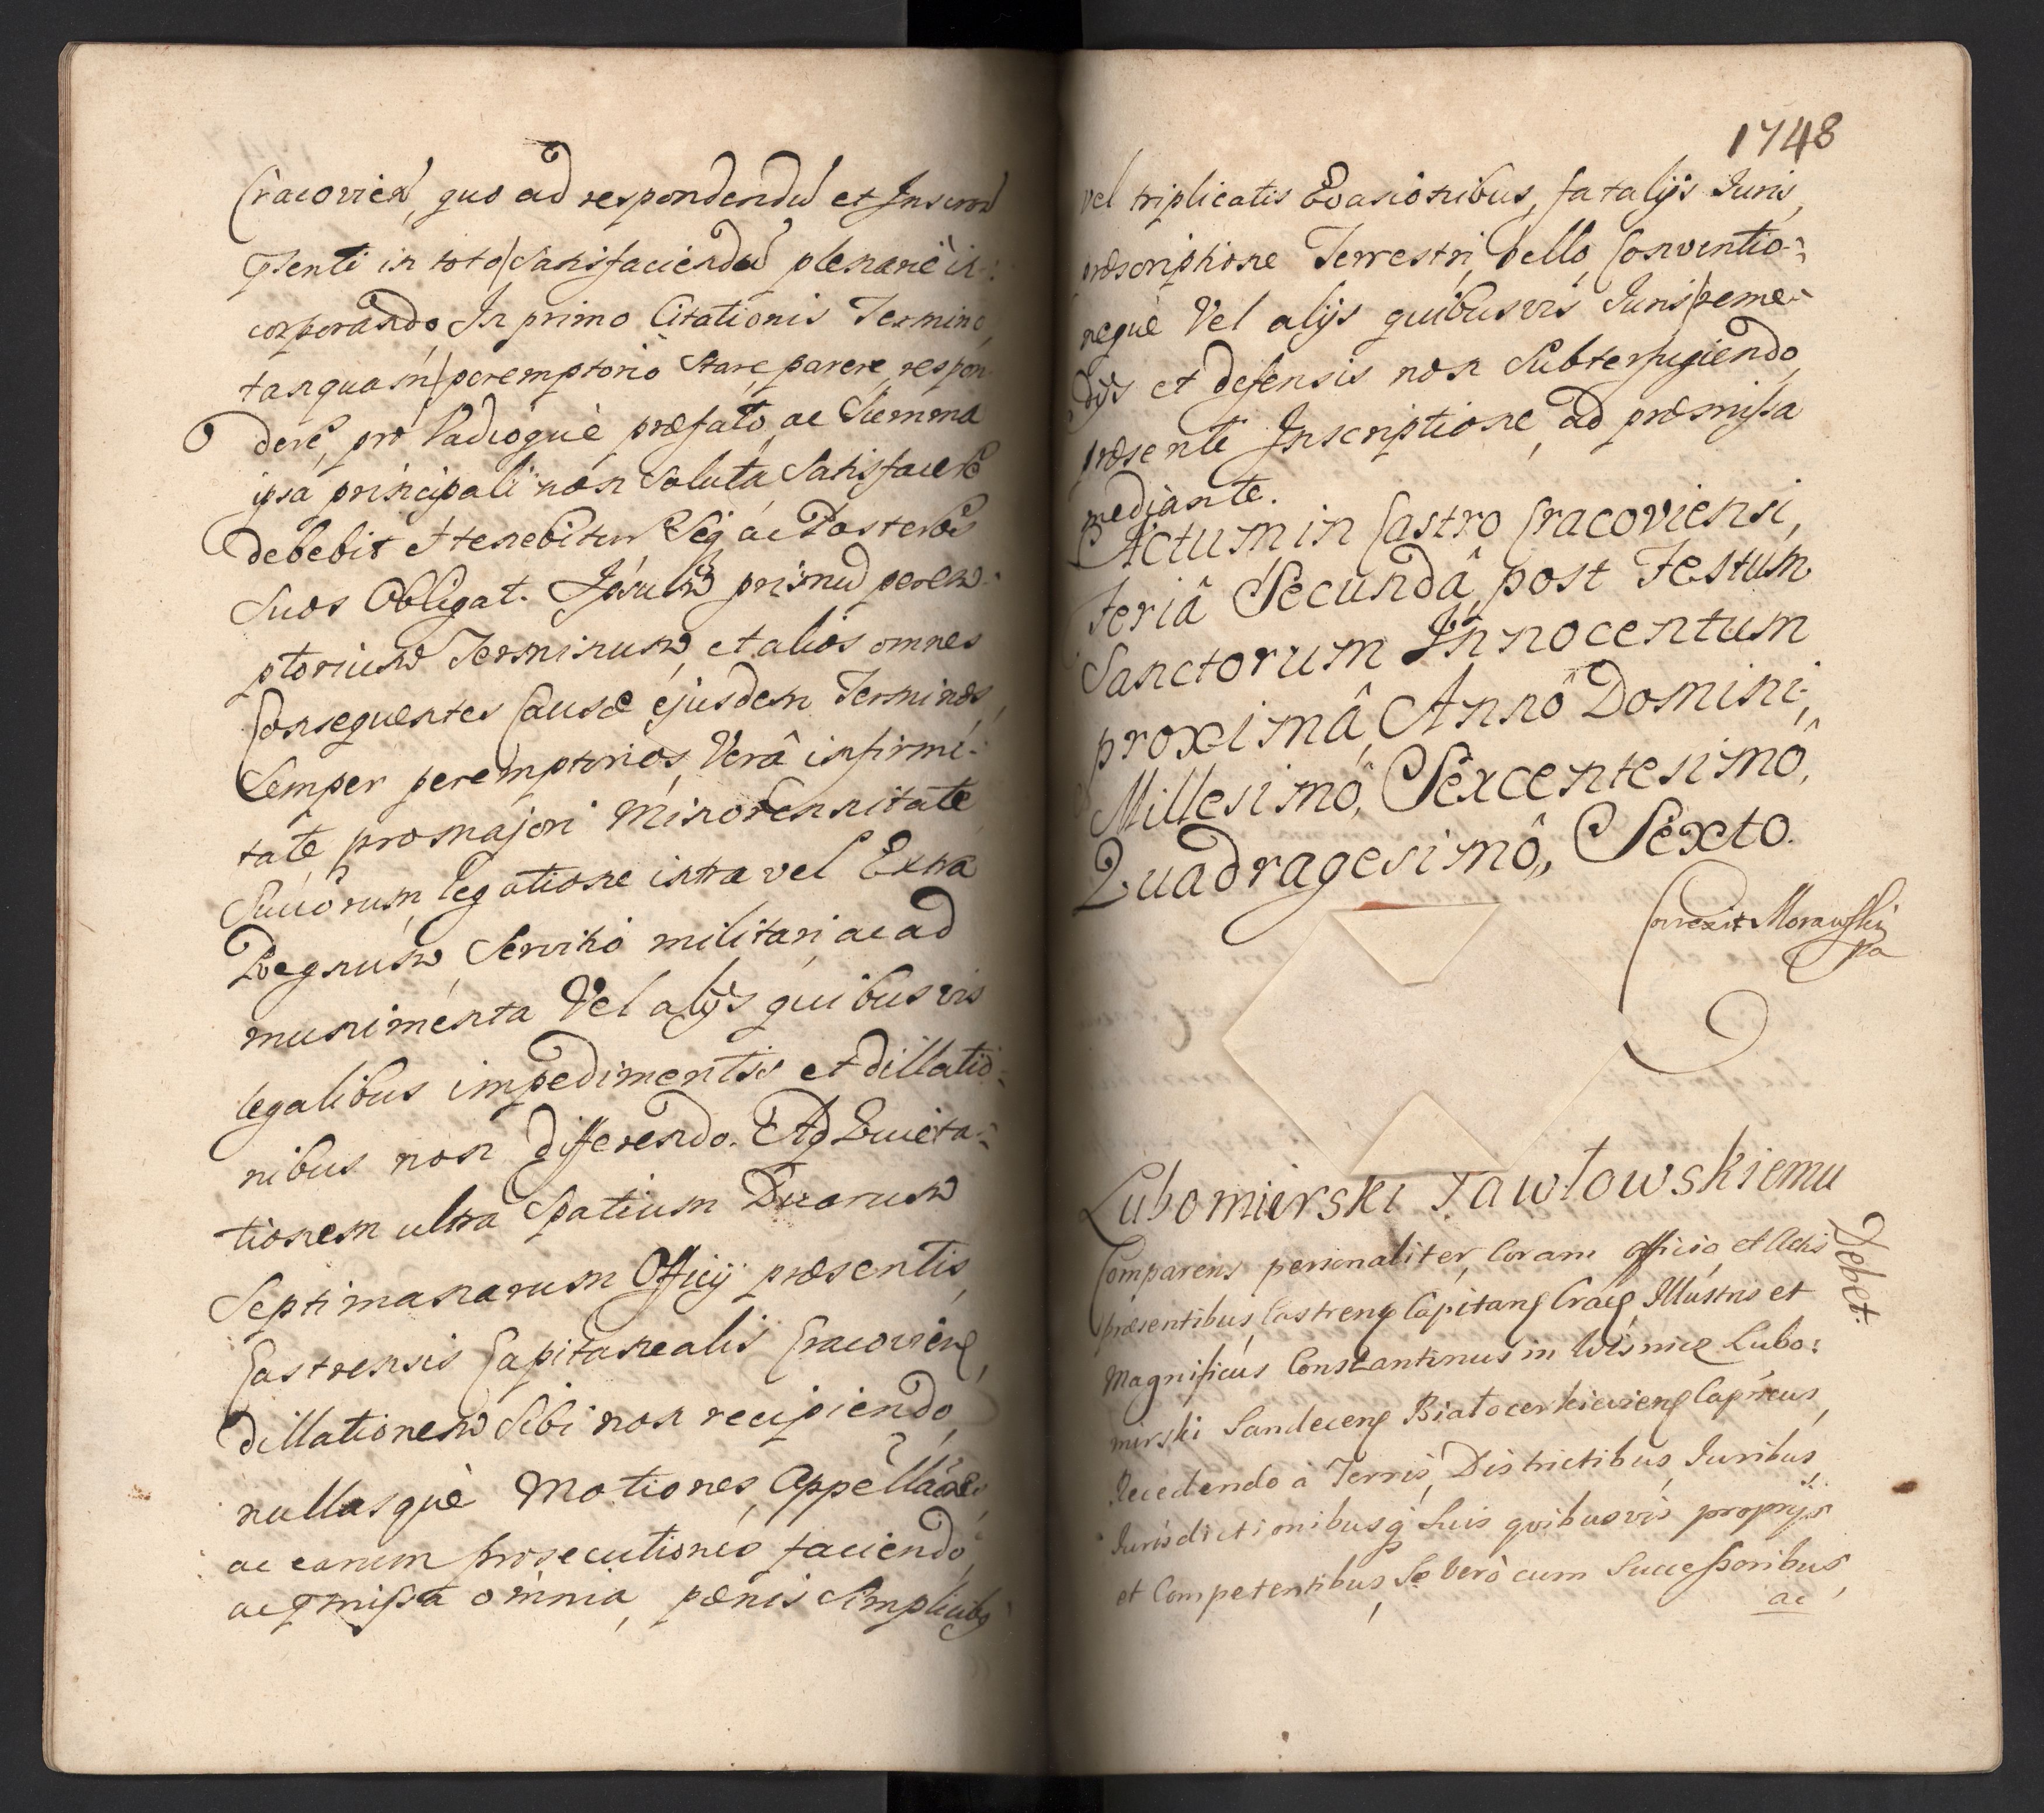 Cracovien, quo ad respondendũ et Inscrõi
pñenti in toto Satisfaciendũ plenarie in:
corporando, In primo Citationis Termino
tanquam peremptorio Stare, parere, respon
dere, pro Vadioquè præfato, ac Summa
ipsa principali non Soluta Satisfacere
debebit et tenebitur Seq ac Posteros
Suos Obligat. Ipsum primũ perem:
ptorium Terminum, et alios omnes
Consequentes Causæ ejusdem Terminos,
Semper peremptorios, Verâ infirmi:
tate, pro majori Minorennitate
Suorum, legatione intra vel Extra
Regnum, Servitio militari, ac ad
munimenta Vel alijs quibusvis
legalibus impedimentis et dillatio:
nibus non differendo. Ad Quieta:
tionem ultra Spatium Duarum
Septimanarum Officij præsentis,
Castrensis Capitanealis Cracovien,
dillationem Sibi non recipiendo,
nullasquè Motiones, Appellãoes,
ac earum prosecutiones faciendo,
ac pmissa omnia, pænis Simplicibq
1748
vel triplicatis Evasionibus, fatalijs Iuris,
præscriptione Terrestri, bello, Conventio:
neque Vel alijs quibusvis Iuris reme:
dijs et defensis non Subterfugiendo,
præsente Inscriptione, ad præmissa
mediante.
Actum in Castro Cracoviensi,
Feriâ Secundâ, post Festum
Sanctorum Innocentum
proximâ, Annô Domini,
Millesimô, Sexcentesimô,
Quadragesimô, Sexto.
Correxit Morawski
pa
Lubomirski Pawłowskiemu
Debet.
Comparens personaliter, Coram officio, et Actis
præsentibus, Castreng Capitang Cracg Illustris et
Magnificus Constantinus in Wisnicg Lubo:
mirski Sandeceng Białocerkievieng Capneus,
Recedendo à Terris, Districtibus, Iuribus,
Iurisdictionibusq Suis quibusvis proprijs
et Competentibus, Se Verò cum Successoribus,
ac